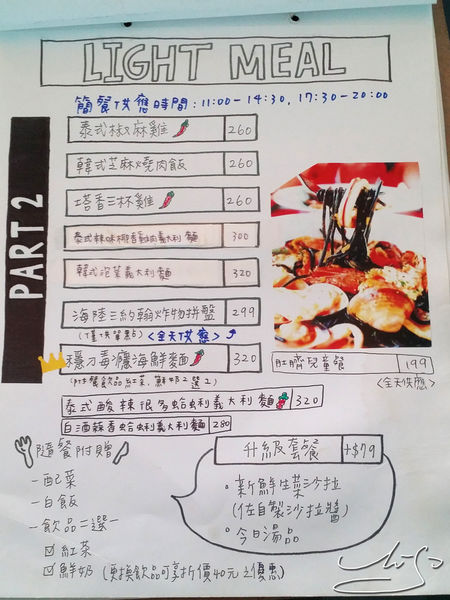 LIGHT MEAL
簡餐供應時間:11:00-14:30, 17:30-20:00
PART 2
泰式椒麻雞 260
韓式芝麻燒肉飯 260
塔香三杯雞 260
泰式辣味椰香雞肉義大利麵 300
韓式泡菜義大利麵 320
海陸三約翰炸物拼盤 299
(僅供單點) <全天供應>
穩刀毒癮海鮮麵 320
(附餐飲品紅茶, 鮮奶2選2)
泰式酸辣很多蛤蜊義大利麵 320
白酒蒜香蛤蜊義大利麵 280
肚臍兒童餐 199
<全天供應>
隨餐附贈
-配菜
-白飯
-飲品二選一
紅茶
鮮奶 (更換飲品可享折價40元之優惠)
升級套餐 +$79
新鮮生菜沙拉
(佐自製沙拉醬)
今日湯品